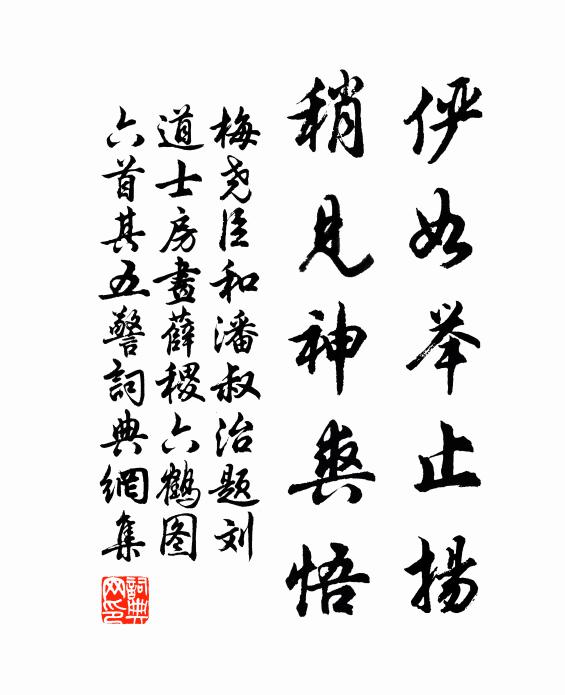 俨如举止扬
稍见神爽悟
梅尧臣和潘叔治题刘
道士房画薛稷六鹤图
六首其五警詞典網集
詞典网印